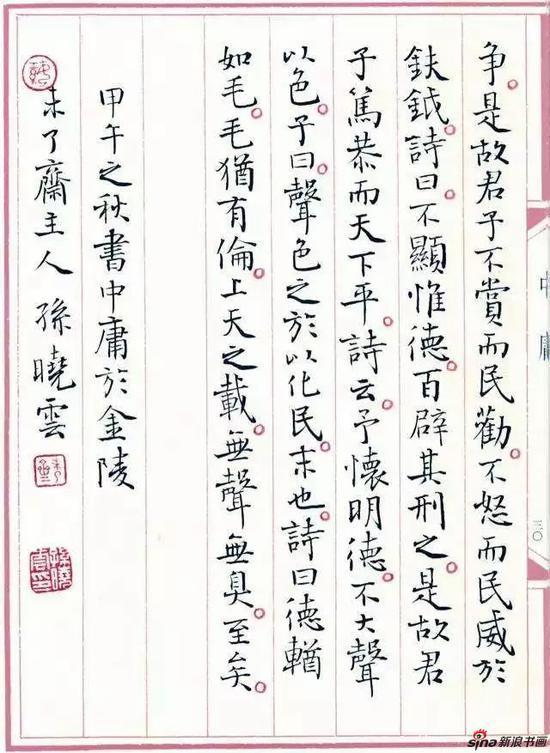 中庸
三〇
争。是故君子不賞而民勸。不怒而民威於
鈇鉞。詩曰不顯惟德。百辟其刑之。是故君
子篤恭而天下平。詩云。予懷明德。不大聲
以色。子曰聲色之於以化民。末也。詩曰德輶
如毛。毛猶有倫。上天之載。無聲無臭。至矣。
甲午之秋書中庸於金陵
未了齋主人 孫曉雲
sina新浪书画